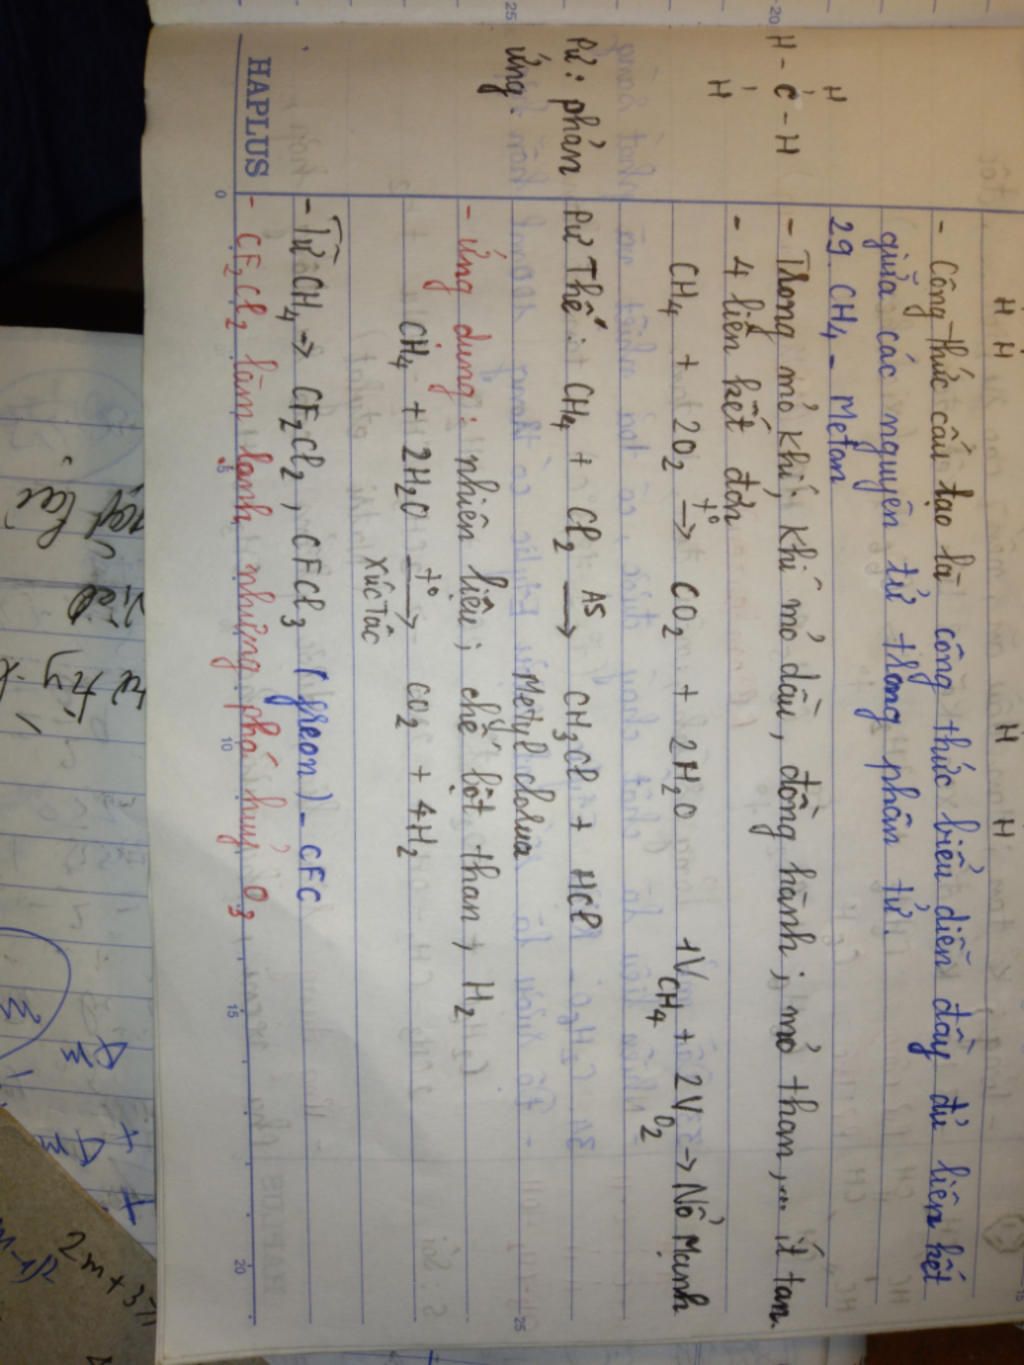 H H H H
- Công thức cấu tạo là công thức biểu diễn đầy đủ liên kết
giữa các nguyên tử trong phân tử.
29. CH₄ - Metan
H
H - C - H
H
- Trong mỏ khí; khí mỏ dầu, đồng hành; mỏ than,... ít tan.
- 4 liên kết đơn
CH₄ + 2O₂ →(t°) CO₂ + 2H₂O 1V CH₄ + 2V O₂ → Nổ Mạnh
Pư: phản
ứng.
Pư Thế: CH₄ + Cl₂ →(AS) CH₃Cl + HCl
Metyl clorua
- ứng dụng: nhiên liệu; chế bột than, H₂
CH₄ + 2H₂O →(t°) CO₂ + 4H₂
xúc tác
- Từ CH₄ → CF₂Cl₂, CFCl₃ (freon) - CFC
- CF₂Cl₂ làm lạnh, nhưng phá huỷ O₃
HAPLUS 0 5 10 15 20
25
20
25
2m+3n